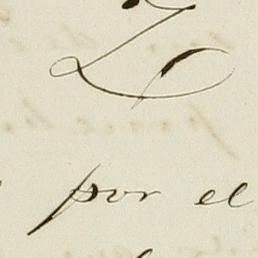 por el